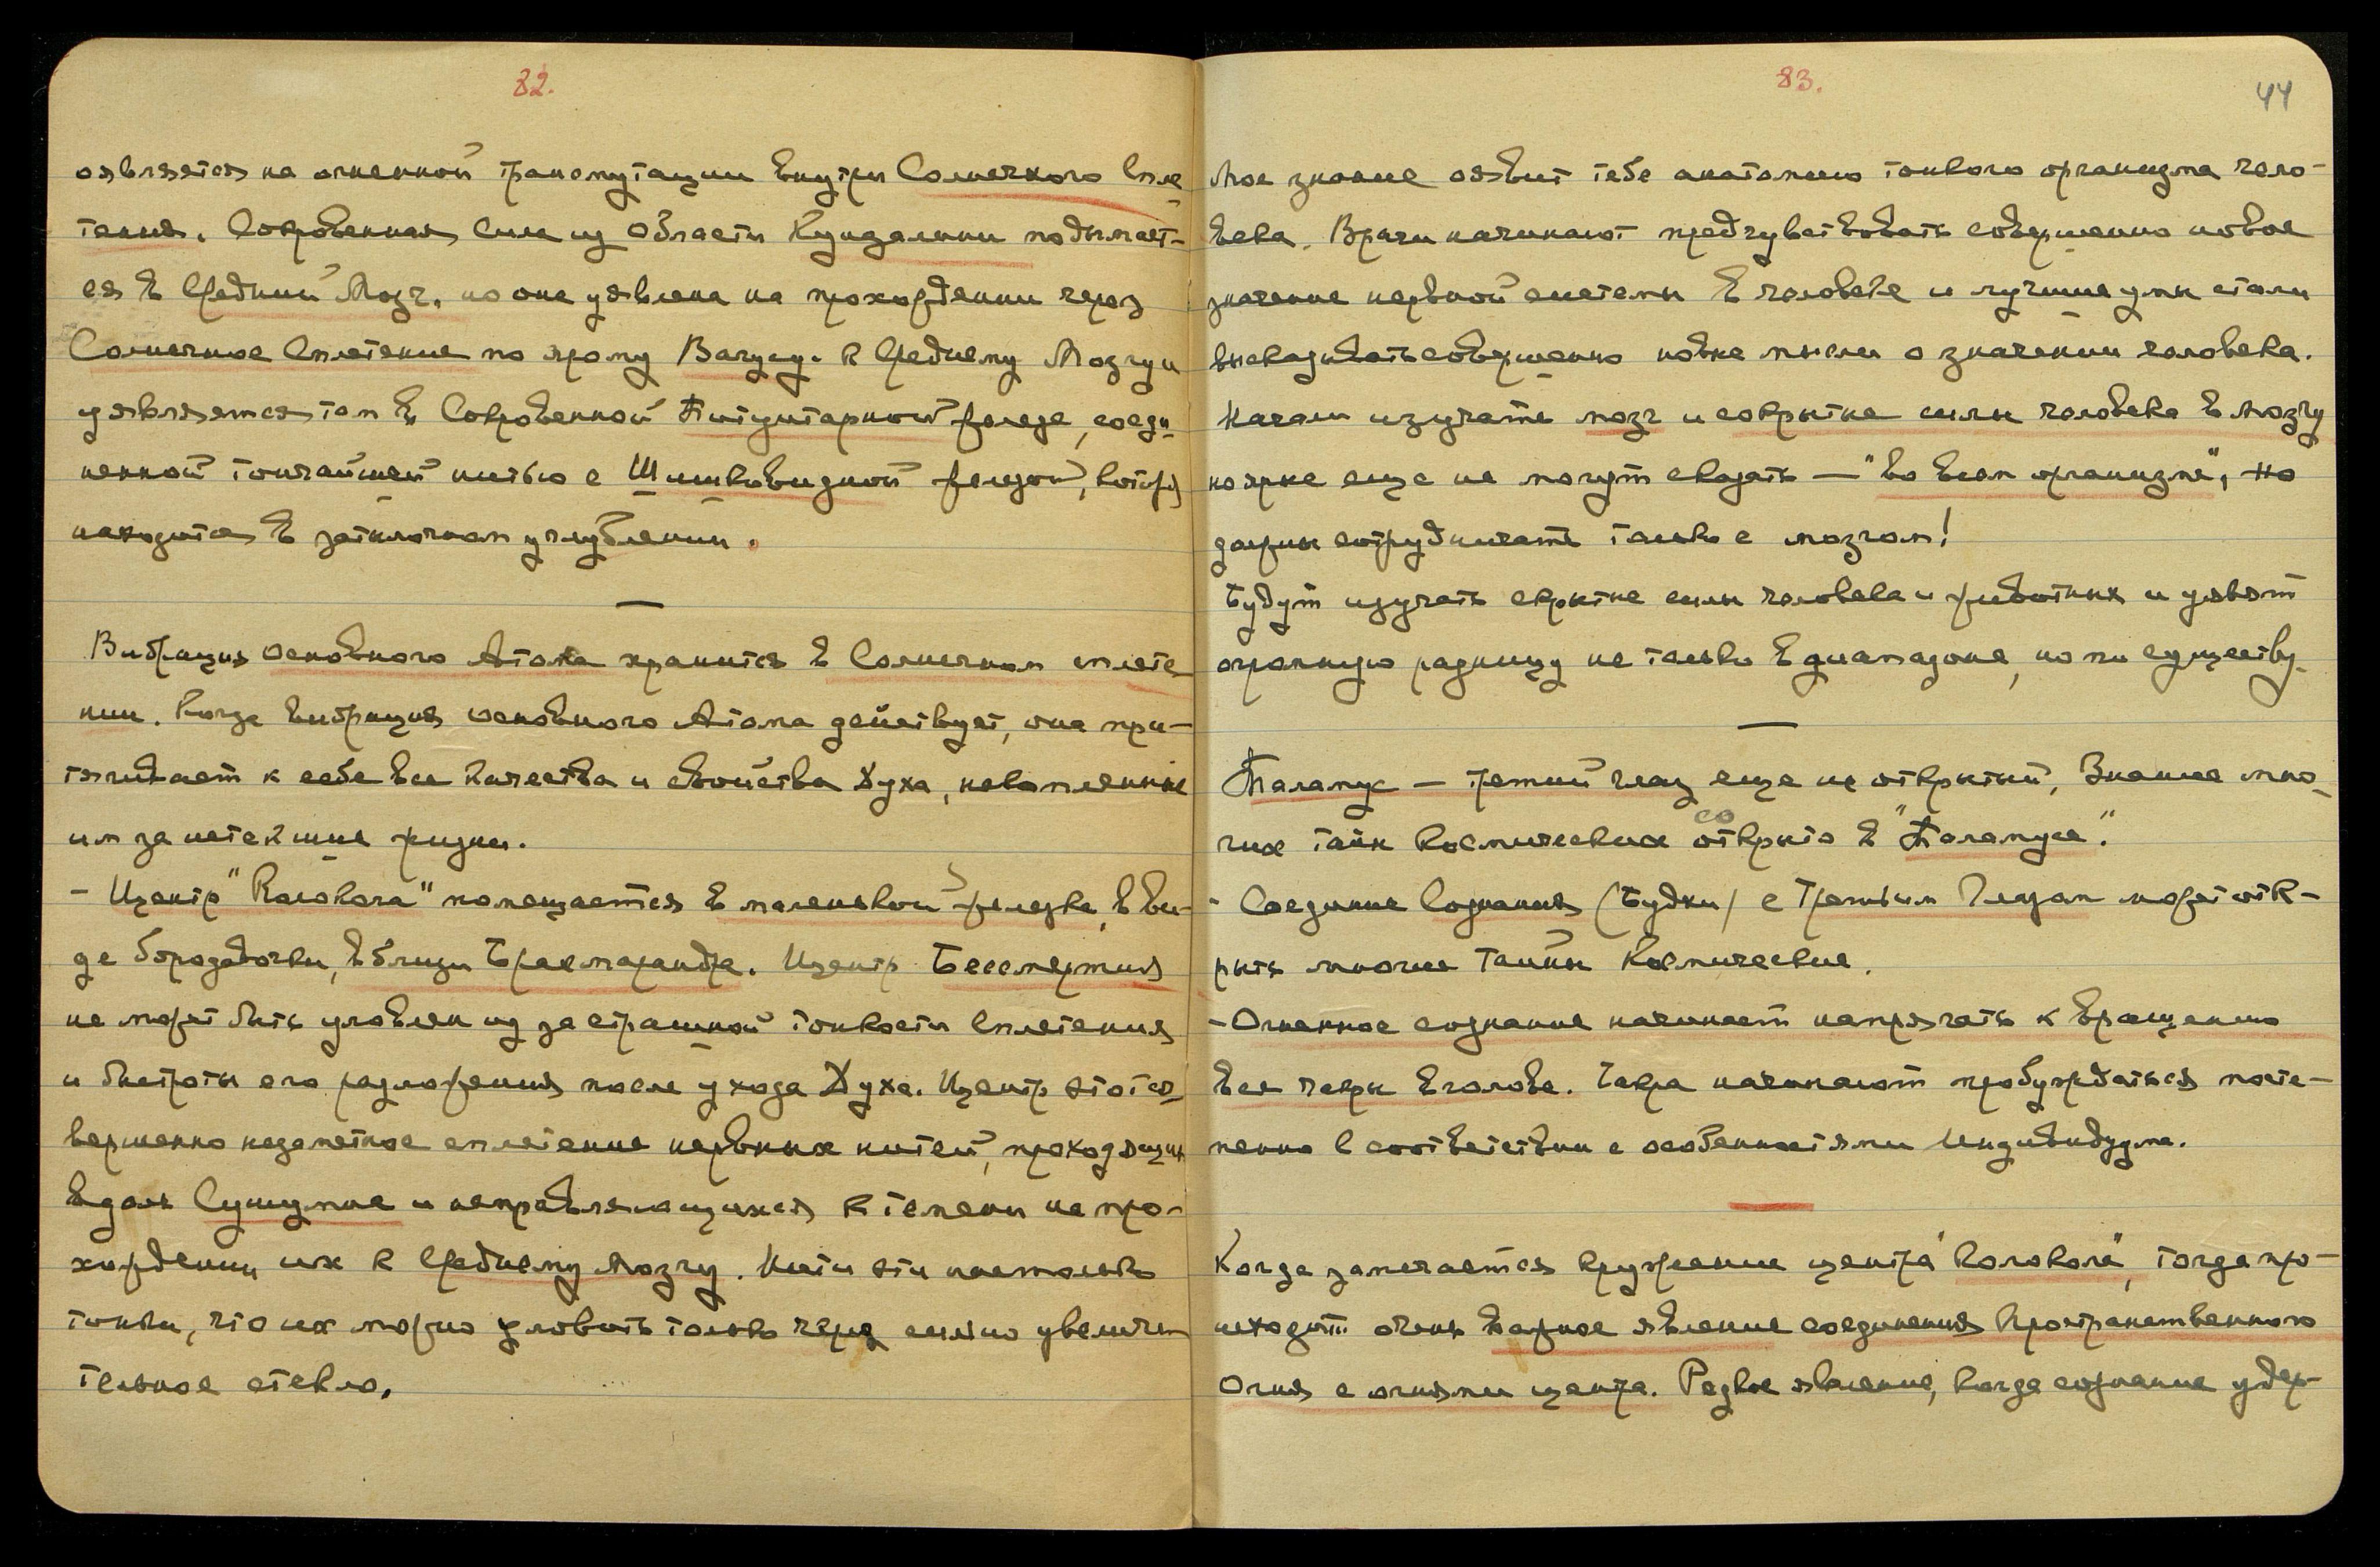 82.
оявляется на огненной трансмутации внутри Солнечного Спле
тения. Сокровенная Сила из области Кундалини подымает-
ся в Средний Мозг, но она уявлена на прохождении через
Солнечное Сплетение по ярому Вагусу. к Среднему Мозгу и
уявляется там в Сокровенной Питуитарной железе, соеди
ненной тончайшей нитью с Шишковидной железой, котор.
находится в затылочном углублении.
Вибрация основного Атома хранится в Солнечном сплете
нии. Когда вибрация основного Атома действует, она при-
тягивает к себе все качества и свойства Духа, накопленные
им за истекшие жизни.
- Центр "Колокола" помещается в маленькой железке, в ви-
де бородавочки, вблизи Брахмарандра. Центр Бессмертия
не может быть уловлен из за страшной тонкости сплетения
и быстроты его разложения после ухода Духа. Центр этот со
вершенно незаметное сплетение нервных нитей, проходящих
вдоль Сушумне и направляющихся к темени на про-
хождении их к Среднему Мозгу. Нити эти настолько
тонки, что их можно уловить только через сильно увеличи
тельное стекло.
83.
44
Мое знание оявит тебе анатомию тонкого организма чело-
века. Врачи начинают предчувствовать совершенно новое
значение нервной системы в человеке и лучшие умы стали
высказывать совершенно новые мысли о значении человека.
Начали изучать мозг и сокрытые силы человека в мозгу
но ярые еще не могут сказать — "во всем организме", но
должны сотрудничать только с мозгом!
Будут изучать скрытые силы человека и животных и уявят
огромную разницу не только в диапазоне, но по существу.
Таламус — третий глаз еще не открытый, Знание мно
гих тайн Космических со открыто в "Таламусе".
- Соединие Сознания (Будхи) с Третьим Глазом может отк-
рыть многие Тайны Космические.
- Огненное сознание начинает напрягать к вращению
все чакры в голове. Чакра начинают пробуждаться посте-
пенно в соответствии с особенностями Индивидуума.
Когда замечается кружение центра "Колокола", тогда про-
исходит очень важное явление соединения Пространственного
Огня с огнями центра. Редкое явление, когда сознание удер-